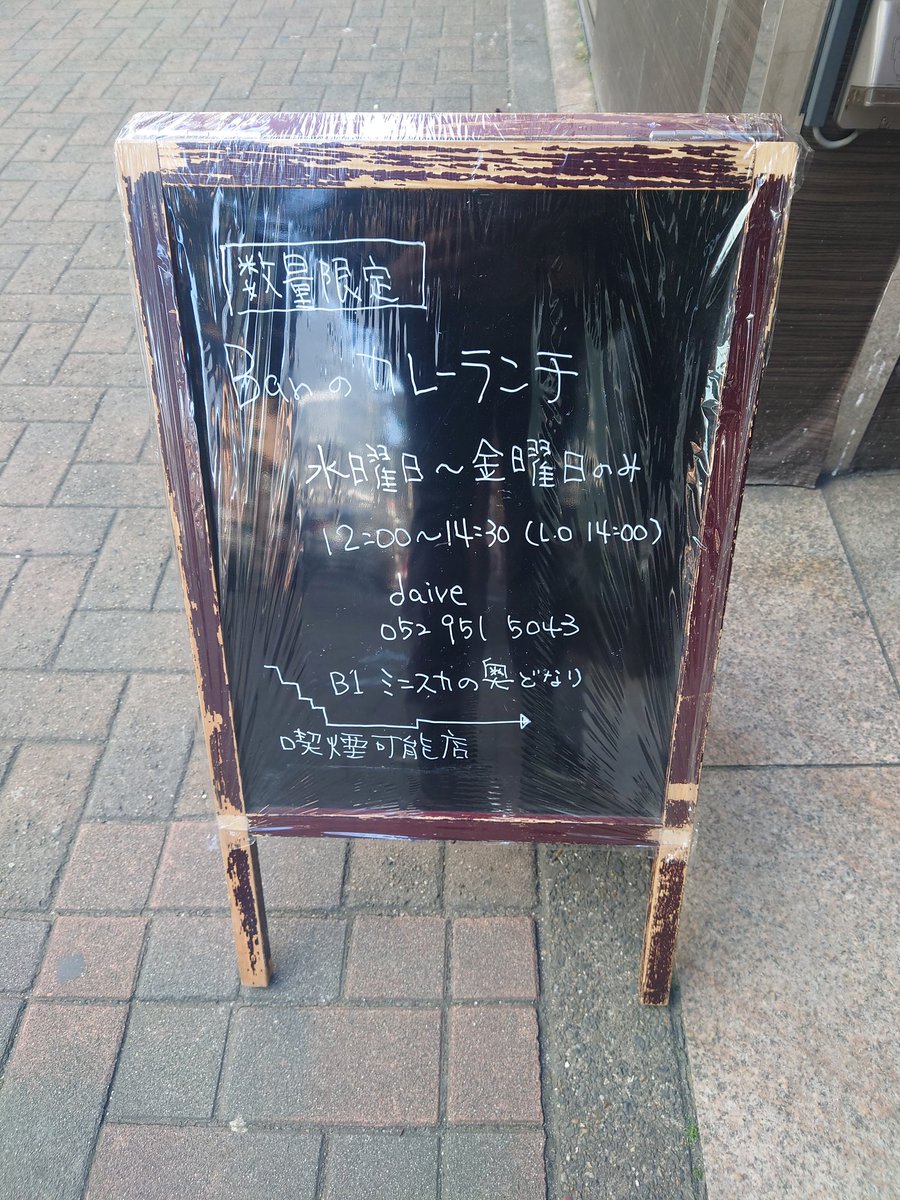 数量限定
Banのカレーランチ
水曜日～金曜日のみ
12:00～14:30 (L.O 14:00)
daive
052 951 5043
B1 ミニスカの奥どなり
喫煙可能店